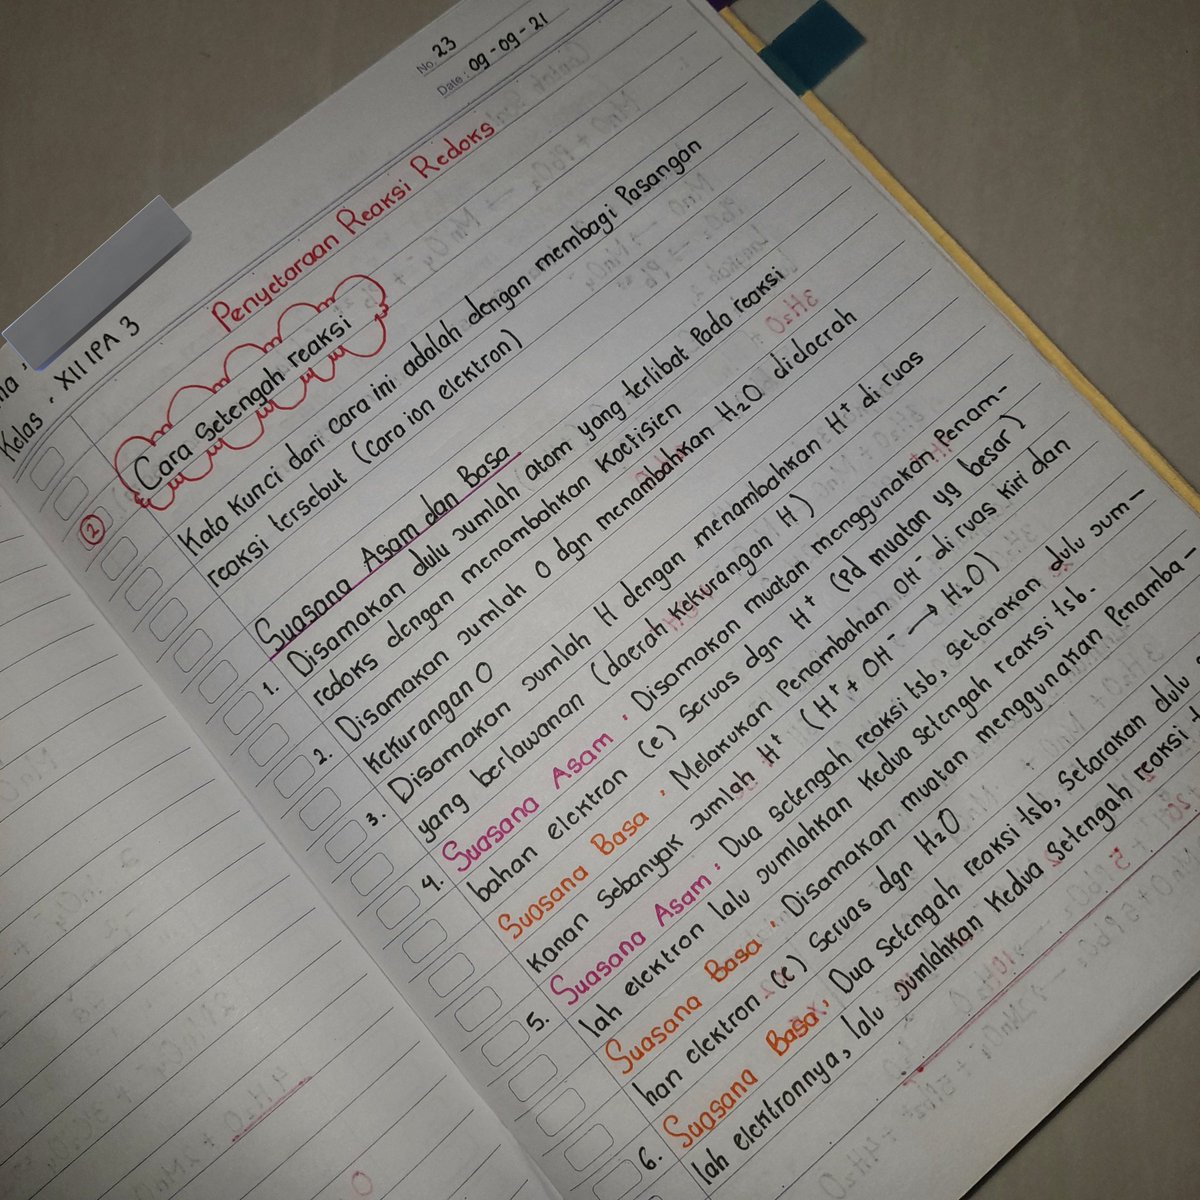 No. 23
Date : 09-09-21
Kelas . XII IPA 3
Penyetaraan Reaksi Redoks
② Cara Setengah reaksi
Kata kunci dari cara ini adalah dengan membagi Pasangan
reaksi tersebut (cara ion elektron)
Suasana Asam dan Basa
1. Disamakan dulu jumlah atom yang terlibat Pada reaksi
redoks dengan menambahkan koefisien
2. Disamakan jumlah O dgn menambahkan H2O didaerah
kekurangan O
3. Disamakan jumlah H dengan menambahkan H+ di ruas
yang berlawanan (daerah kekurangan H)
4. Suasana Asam : Disamakan muatan menggunakan Penam-
bahan elektron (e) seruas dgn H+ (Pd muatan yg besar)
Suasana Basa : Melakukan Penambahan OH- di ruas kiri dan
kanan sebanyak jumlah H+ (H+ + OH- → H2O)
5. Suasana Asam : Dua setengah reaksi tsb, setarakan dulu jum-
lah elektron lalu jumlahkan kedua setengah reaksi tsb.
Suasana Basa : Disamakan muatan menggunakan Penamba-
han elektron (e) seruas dgn H2O
6. Suasana Basa : Dua setengah reaksi tsb, setarakan dulu
lah elektronnya, lalu jumlahkan kedua setengah reaksi